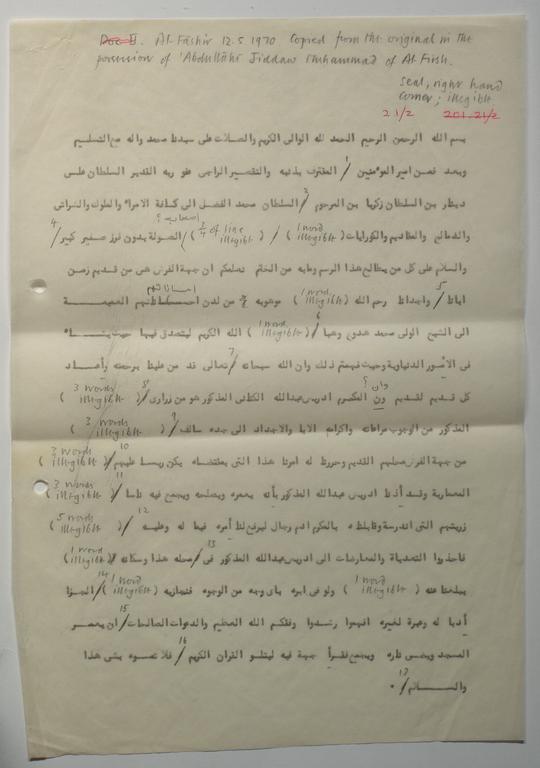 Doc II. Al-Fāshir 12.5.1970 Copied from the original in the
possession of 'Abdullāhi Jiddaw Muhammad of Al Firsh.
Seal, right hand
corner; illegible
2 1/2 201.21/2
بسم الله الرحمن الرحيم الحمد لله الوالى الكريم والصلات على سيدنا محمد واله مع التسليم
1
وبعد فمن امير المؤمنين / المعترف بذنبه والتقصير الراجى عفو ربه القدير السلطان على
2
دينار بن السلطان زكريا بن المرحوم / السلطان محمد الفضل الى كافة الامراء والملوك والشراتى
اصحابه ؟
والدمالج والمقاديم والكورايات (1 word illegible) / (3/4 of line illegible) / الصولة بدون فرز صغير كبير / 4
والسلام على كل من يطالع هذا الرسم وما به من الختم نعلمكم ان جهة الفرش هى من قديم زمن
5
اباءنا / واجدادنا رحم الله (1 word illegible) موهوبه من لدن احساناتهم العميمة
6
الى الشيخ الولى محمد هدوى وهبا / (1 word illegible) الله الكريم ليتصدق فيها حيث يشاء
7
فى الأمور الدنياوية وحيث فهمتم ذلك وان الله سبحانه / تعالى قد من علينا برحمته وأعاد
وان ؟ 8
كل قديم لقديم ون المكرم ادريس عبدالله المذكور هو من ذرارى / (3 words illegible)
9
المذكور من الوجوب مراعاته واكرام الابا والاجداد الى جده سالف / (3 words illegible)
10
من جهة الفرش محلهم القديم وحررنا له امرنا هذا التى بمقتضاه يكن ريسا عليهم / (3 words illegible)
11
المعمارية وقد أذنا ادريس عبدالله المذكور بأنه يعمره ويصلحه ويجمع فيه ناسا / (3 words illegible)
12
زريتهم التى اندرسة بالكرم ادم رجال ليرفع لنا أمره فيما له وعليه / (5 words illegible)
13
فاحذروا التعديات والمعارضات الى ادريس عبدالله المذكور فى / محله هذا وسكانه (1 word illegible)
14
يبلغنا عنه (1 word illegible) ولو فى ابره باى وجه من الوجوه فنجازيه (1 word illegible) / الجزا
15
أدبا له وعبرة لغيره افهموا رشدوا وفقكم الله العظيم والدعوات الصالحات / ان يعمر
16
المسجد ويحى ناره ويجمع فقرأ جهة فيه ليتلو القران الكريم / فلا تعدوه بشى هذا
17
والسلام / .